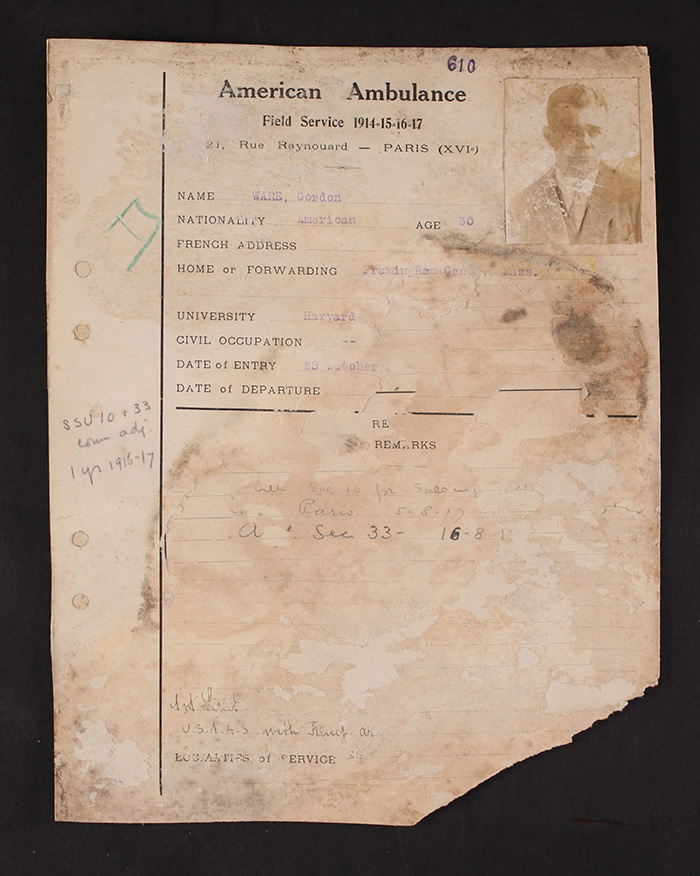 610
American Ambulance
Field Service 1914-15-16-17
21, Rue Raynouard — PARIS (XVIe)
NAME WARE, Gordon
NATIONALITY American AGE 30
FRENCH ADDRESS
HOME or FORWARDING Framingham Mass.
UNIVERSITY Harvard
CIVIL OCCUPATION --
DATE of ENTRY 28 October
DATE of DEPARTURE
RE
REMARKS
SSU 10 + 33
com adj.
1 yr 1916-17
Sec 10 for
Paris. 5-8-17
Sec 33- 16-8
1st Lieut.
with
LOCALITIES of SERVICE